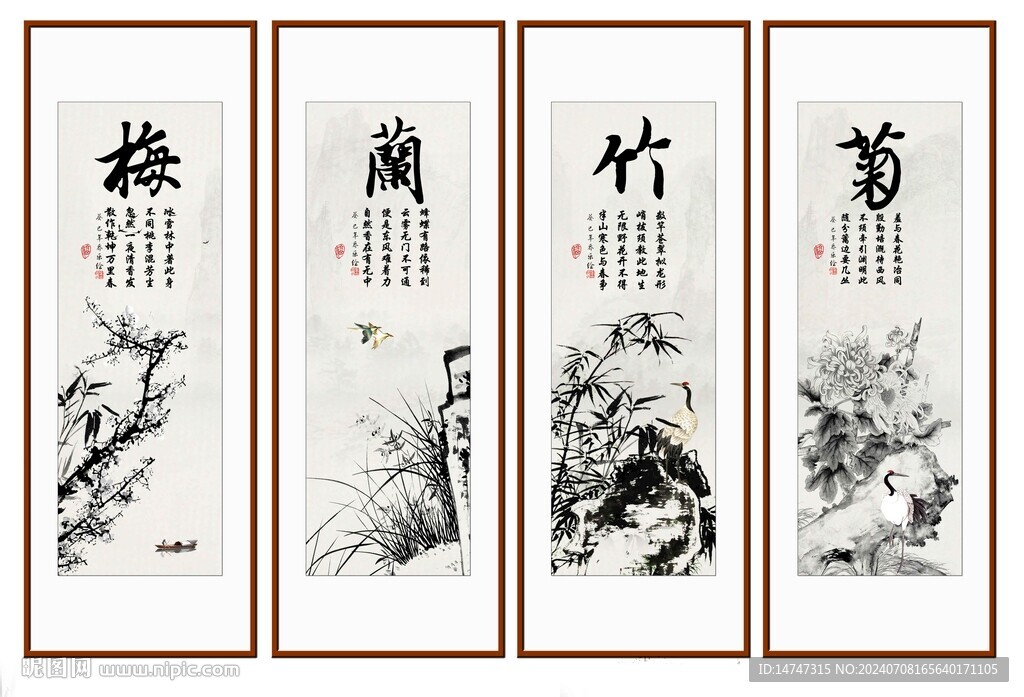 梅
冰雪林中著此身
不同桃李混芳尘
忽然一夜清香发
散作乾坤万里春
蘭
蜂蝶有路依稀到
云雾无门不可通
便是东风难着力
自然香在有无中
竹
数竿苍翠拟龙形
峭拔须教此地生
无限野花开不得
半山寒色与春争
菊
羞与春花艳冶同
殷勤培溉待西风
不须牵引渊明此
随分篱边要几丛
昵图网 www.nipic.com
ID:14747315 NO:20240708165640171105